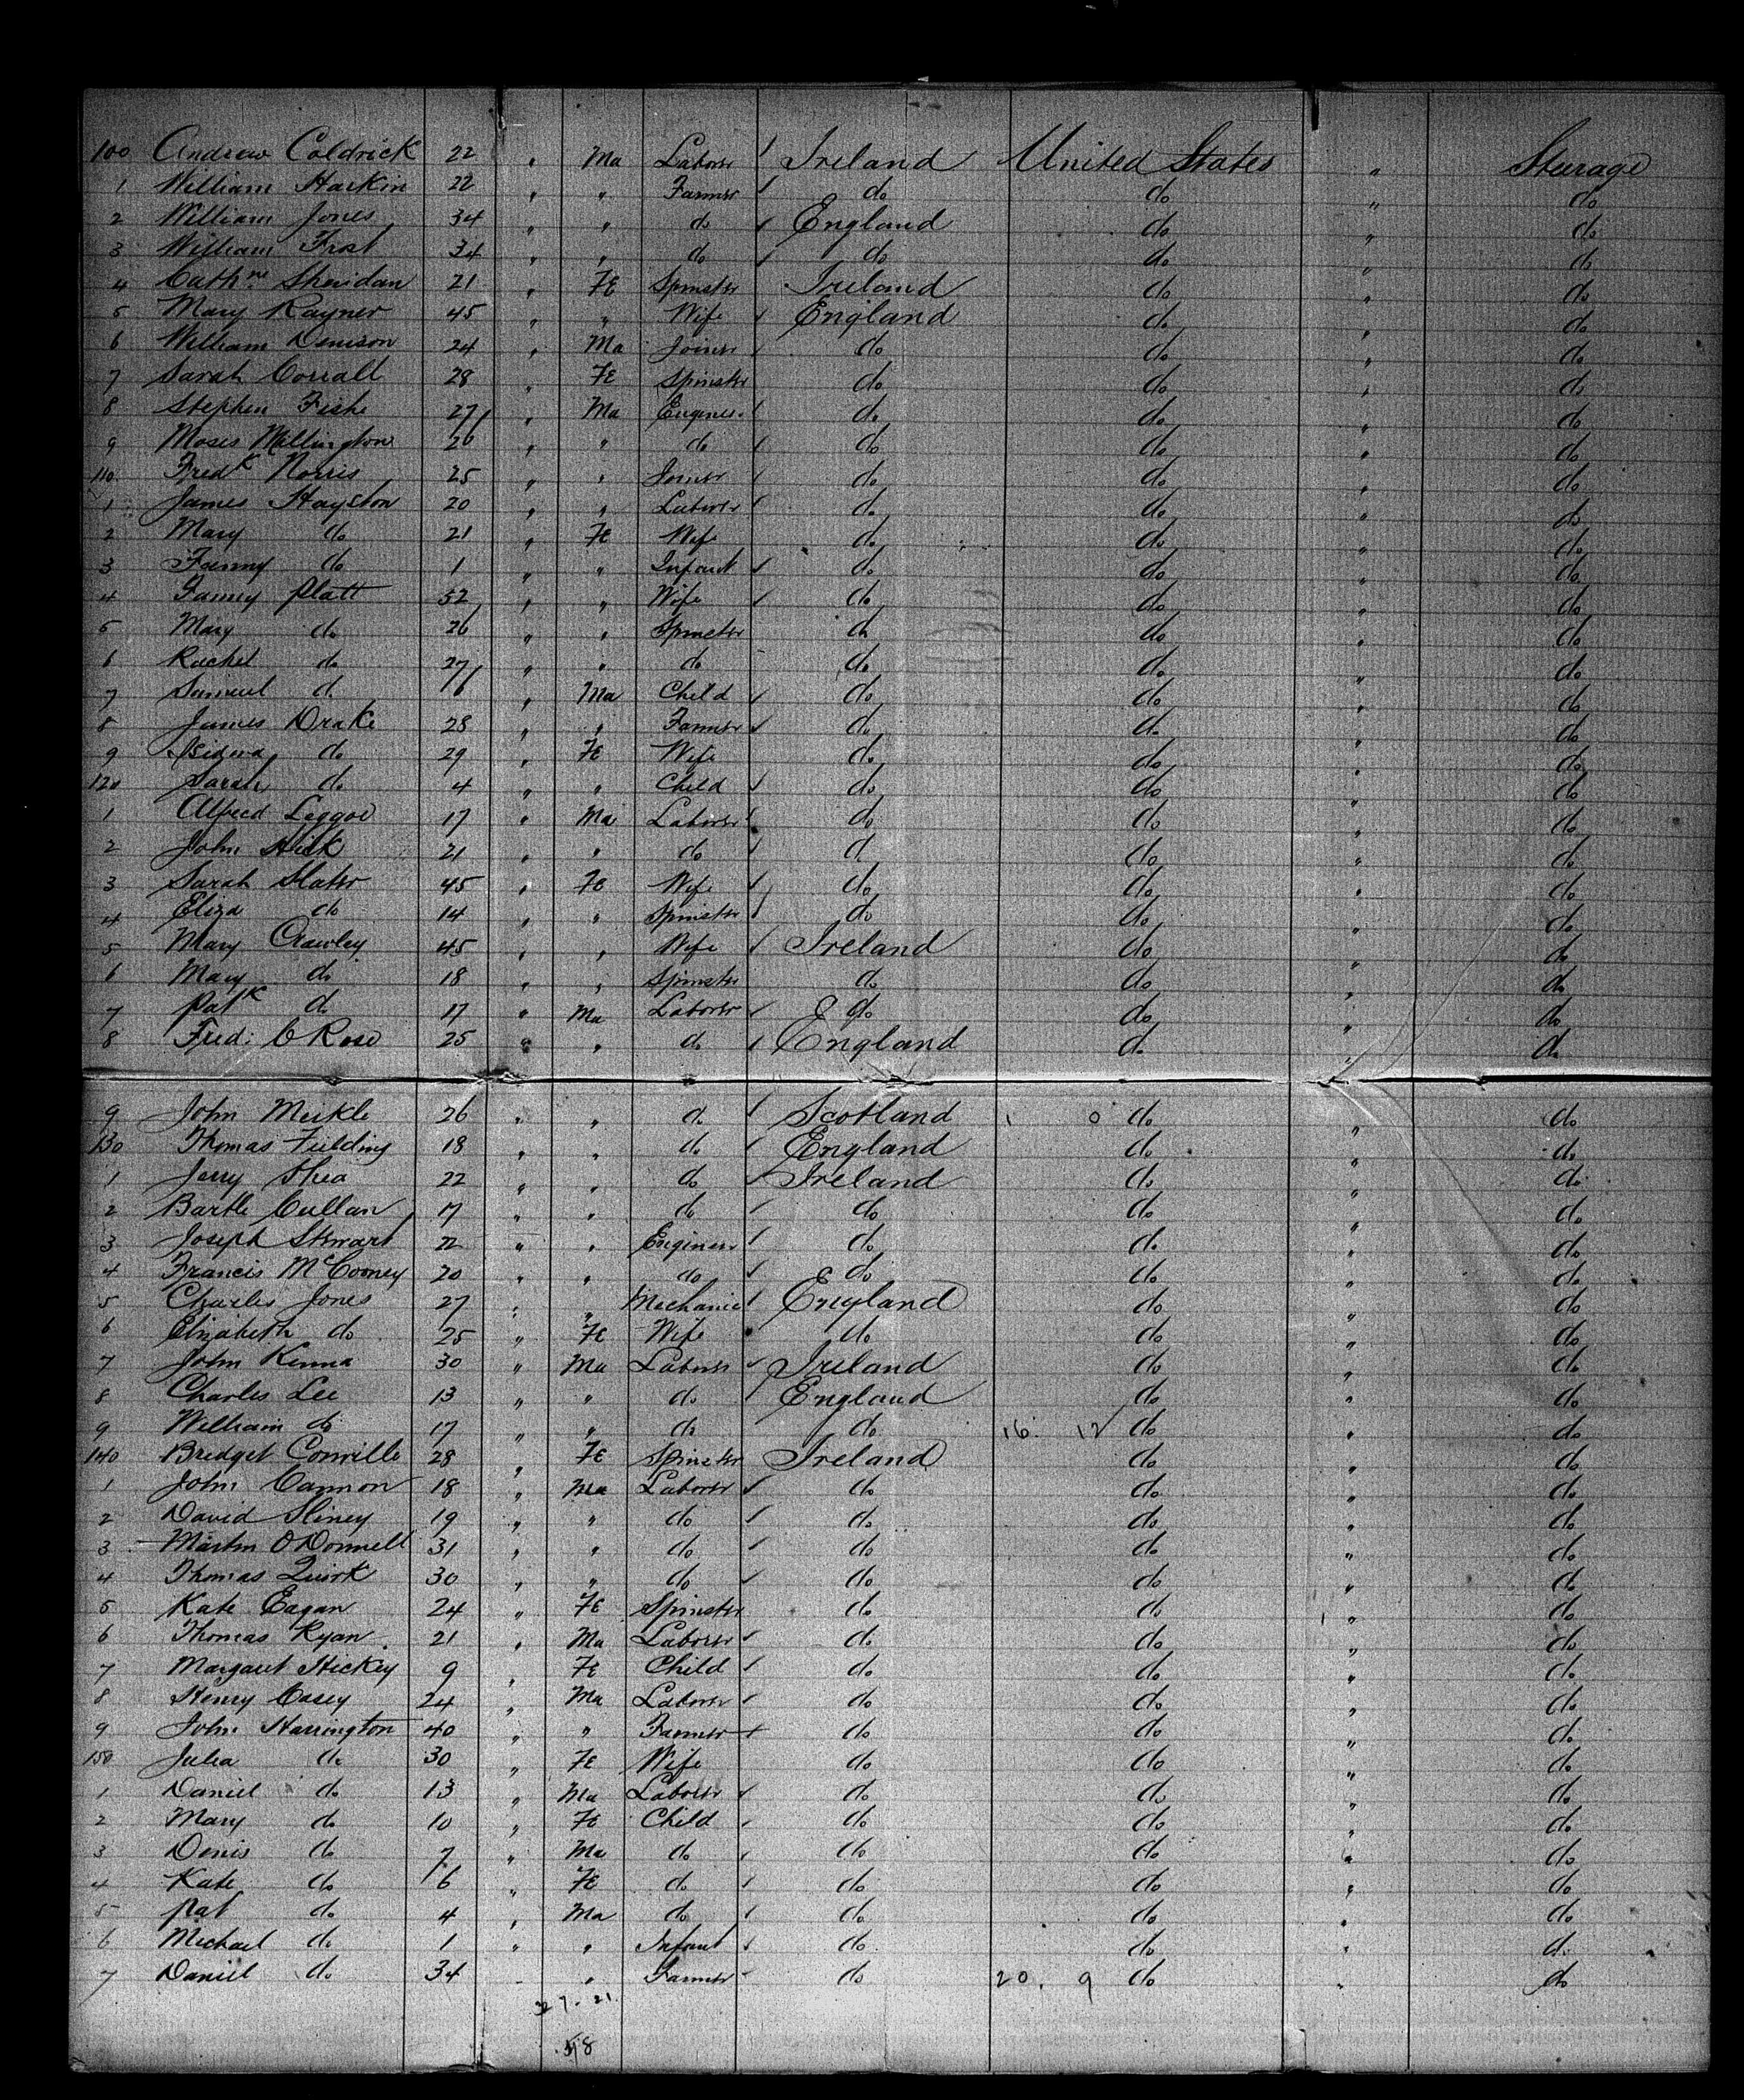 100 Andrew Coldrick 22 " Ma Laborer Ireland United States " Sturage
1 William Harkin 22 " " Farmer do do " do
2 William Jones 34 " " do England do " do
3 William Frost 34 " " do do do " do
4 Cathne Sheridan 21 " Fe Spinster Ireland do " do
5 Mary Rayner 45 " " Wife England do " do
6 William Denison 24 " Ma Joiner do do " do
7 Sarah Corrall 28 " Fe Spinster do do " do
8 Stephen Fishe 27 " Ma Engineer do do " do
9 Moses Millington 26 " " do do do " do
110 Fredk Norris 25 " " Joiner do do " do
1 James Hayston 20 " " Laborer do do " do
2 Mary do 21 " Fe Wife do do " do
3 Fanny do 1 " " Infant do do " do
4 Fanny Platt 52 " " Wife do do " do
5 Mary do 26 " " Spinster do do " do
6 Rachel do 27 " " do do do " do
7 Samuel do 6 " Ma Child do do " do
8 James Drake 28 " " Farmer do do " do
9 Isidora do 29 " Fe Wife do do " do
120 Sarah do 4 " " Child do do " do
1 Alfred Leggoe 17 " Ma Laborer do do " do
2 John Hick 21 " " do do do " do
3 Sarah Slater 45 " Fe Wife do do " do
4 Eliza do 14 " " Spinster do do " do
5 Mary Crawley 45 " " Wife Ireland do " do
6 Mary do 18 " " Spinster do do " do
7 Patk do 17 " Ma Laborer do do " do
8 Fred: C Rose 25 " " do England do " do
9 John Meikle 26 " " do Scotland 1 0 do " do
130 Thomas Fielding 18 " " do England do " do
1 Jerry Shea 22 " " do Ireland do " do
2 Bartle Cullan 17 " " do do do " do
3 Joseph Stewart 22 " " Engineer do do " do
4 Francis McCooney 20 " " do do do " do
5 Charles Jones 27 " " Mechanic England do " do
6 Elizabeth do 25 " Fe Wife do do " do
7 John Kenna 30 " Ma Laborer Ireland do " do
8 Charles Lee 13 " " do England do " do
9 William do 17 " " do do 16. 12 do " do
140 Bridget Conville 28 " Fe Spinster Ireland do " do
1 John Cannon 18 " Ma Laborer do do " do
2 David Sliney 19 " " do do do " do
3 Martin O'Donnell 31 " " do do do " do
4 Thomas Quirk 30 " " do do do " do
5 Kate Eagan 24 " Fe Spinster do do " do
6 Thomas Ryan 21 " Ma Laborer do do " do
7 Margaret Hickey 9 " Fe Child do do " do
8 Henry Casey 24 " Ma Laborer do do " do
9 John Harrington 40 " " Farmer do do " do
150 Julia do 30 " Fe Wife do do " do
1 Daniel do 13 " Ma Laborer do do " do
2 Mary do 10 " Fe Child do do " do
3 Denis do 7 " Ma do do do " do
4 Kate do 6 " Fe do do do " do
5 Pat do 4 " Ma do do do " do
6 Michael do 1 " " Infant do do " do
7 Daniel do 34 " " Farmer do 20. 9 do " do
37. 21.
58